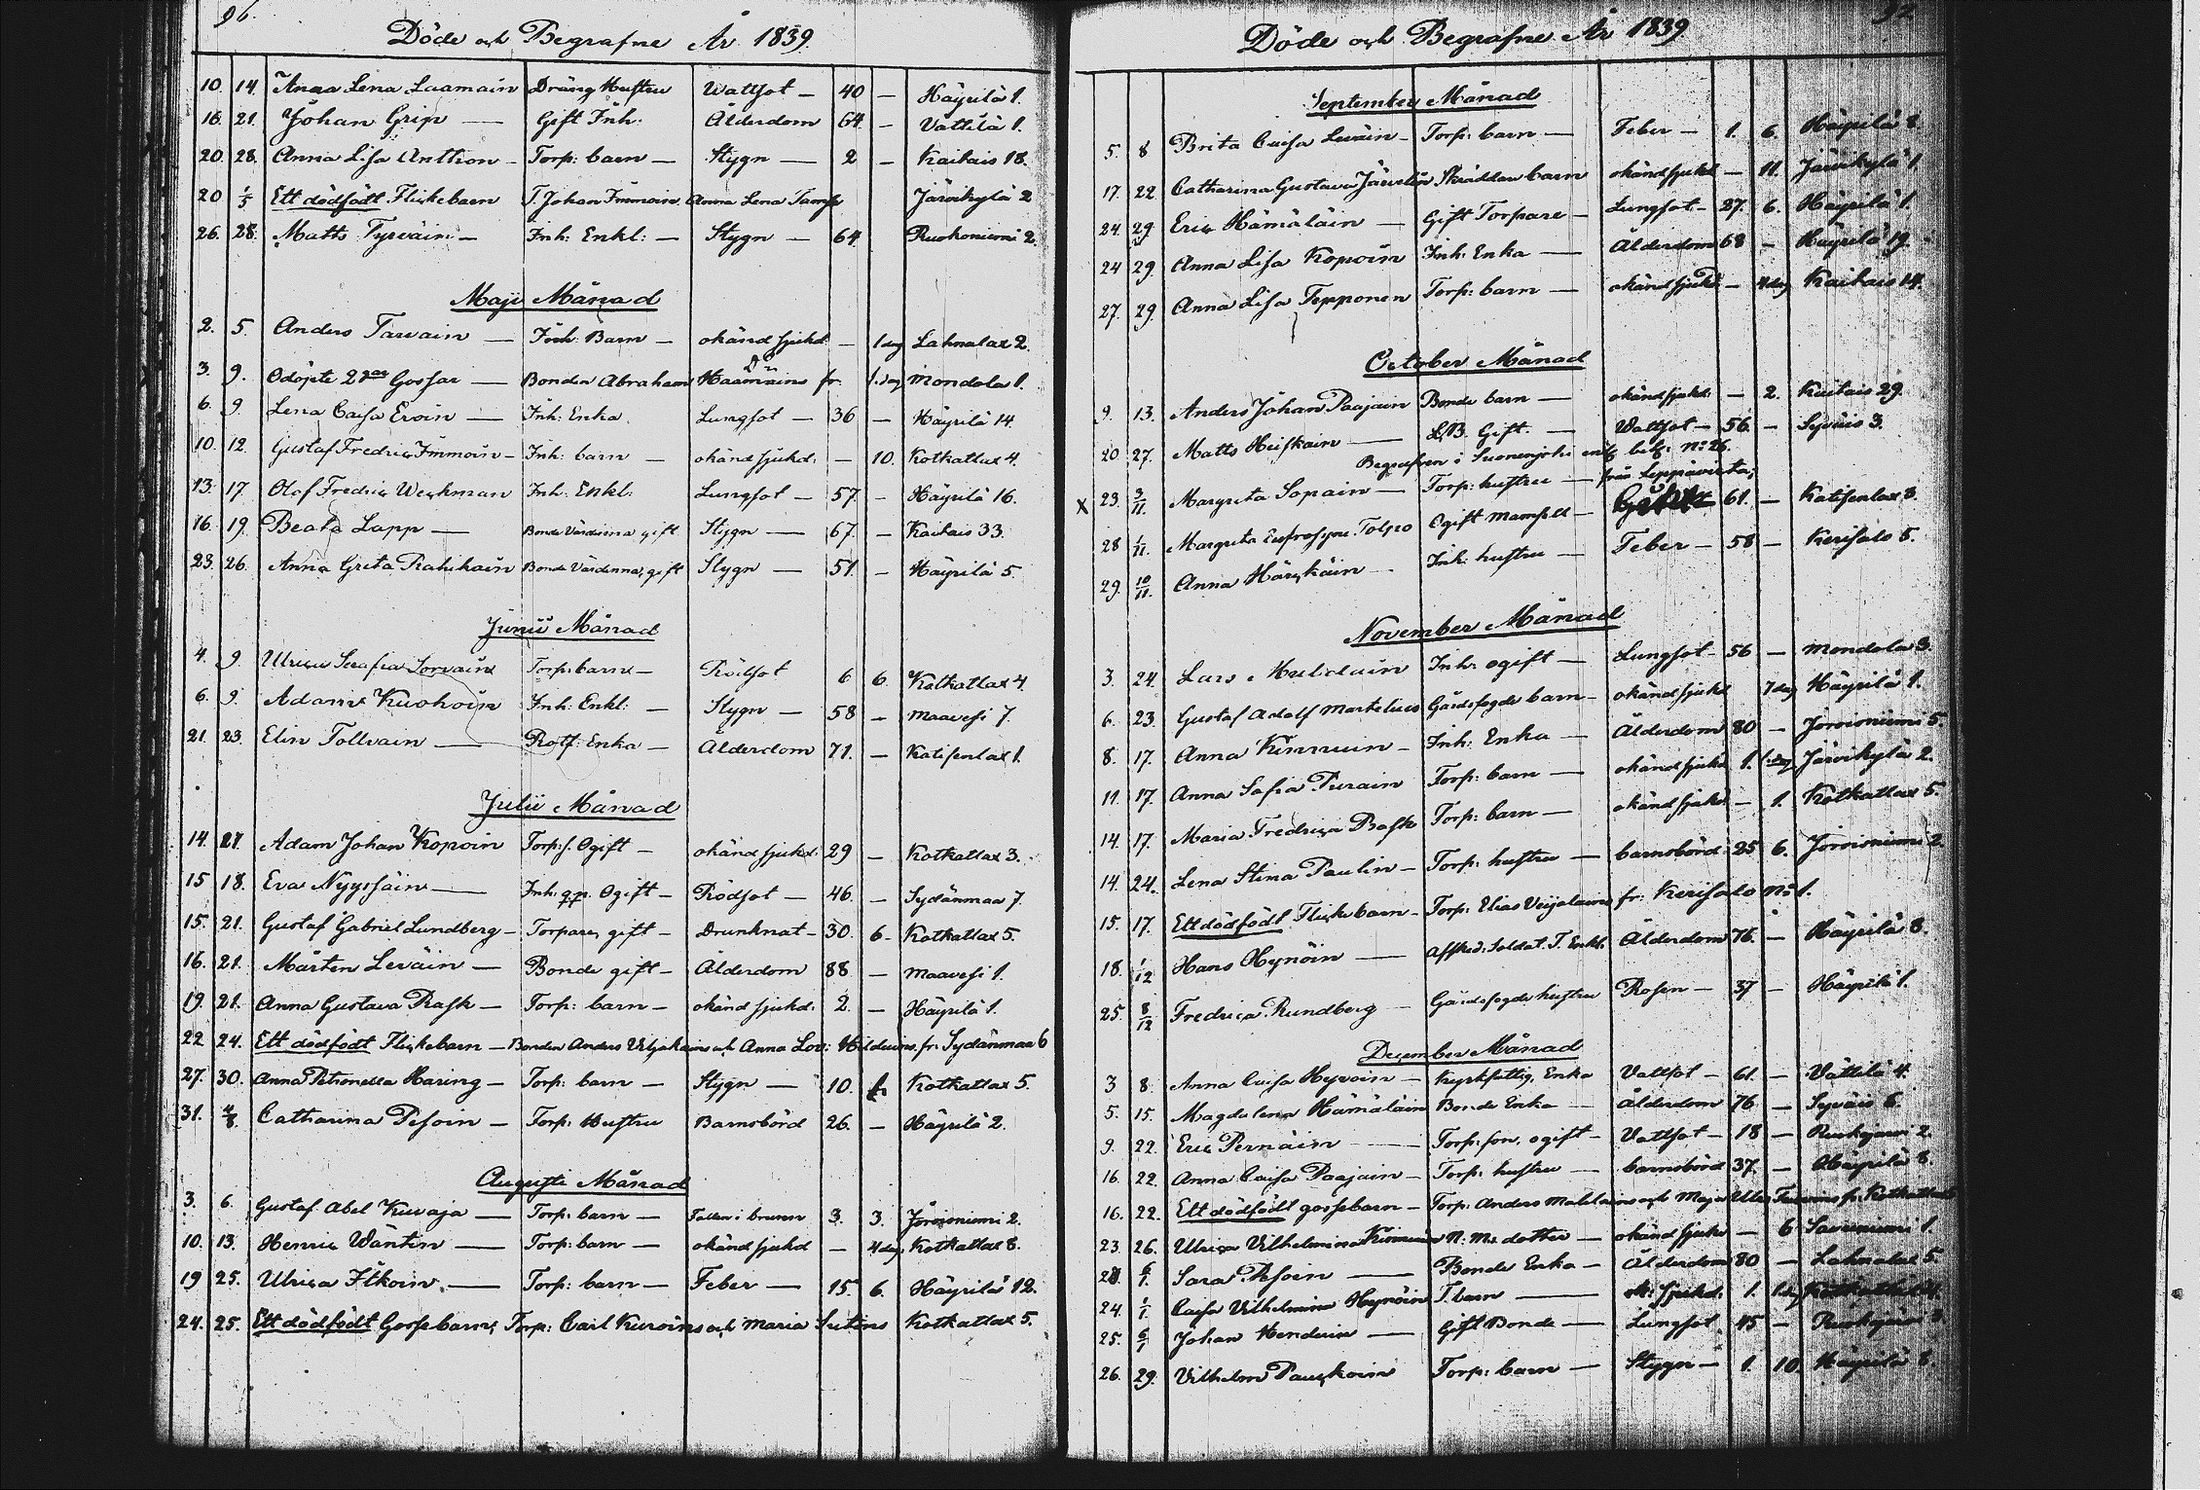 96.
Döde och Begrafne År 1839.
10. 14. Anna Lena Laamain Dräng Hustru Wattsot — 40 — Häyrilä 1.
16. 21. Johan Grip — Gift Inh: Ålderdom 64. — Vättilä 1.
20. 28. Anna Lisa Anttion — Torp: barn — Stygn — 2 — Kaitais 18.
20 1/5 Ett dödfödt Flickebarn T. Johan Immoin Anna Lena Järvikylä 2
26. 28. Matts Tyrväin — Inh: Enkl: — Stygn — 64 Ruokoniemi 2.
Maji Månad
2. 5. Anders Tarvain — Inh: Barn — okänd sjukd — 1 dag Lahnalax 2.
3. 9. Odöpte 2 Gossar — Bonden Abraham fr: 1. dag Mondola 1.
6. 9. Lena Caisa Eroin — Inh: Enka. Lungsot — 36 — Häyrilä 14.
10. 12. Gustaf Fredric Immoin — Inh: barn — okänd sjukd: — 10. Kotkatlax 4.
13. 17. Olof Fredric Weckman Inh: Enkl: Lungsot — 57. — Häyrilä 16.
16. 19. Beata Lapp — Bonde Värdinna gift Stygn — 67. — Kaitais 33.
23. 26. Anna Greta Rahikain Bonde Värdinna, gift Stygn — 51. — Häyrilä 5.
Junii Månad
4. 9. Ulrica Serafia Sorvain Torp: barn — Rödsot 6 6. Kotkatlax 4.
6. 9. Adam Kuohoin Inh: Enkl: — Stygn — 58 — Maavesi 7.
21. 23. Elin Tollvain — Rotf: Enka — Ålderdom 71. — Katisenlax 1.
Julii Månad
14. 21. Adam Johan Kopoin Torp: s. Ogift — okänd sjukd: 29 — Kotkatlax 3.
15 18. Eva Nyyssäin — Inh: qp. Ogift — Rödsot — 46. — Sydänmaa 7.
15. 21. Gustaf Gabriel Lundberg — Torpare, gift — Drunknat — 30. 6. Kotkatlax 5.
16. 21. Mårten Leväin — Bonde gift — Ålderdom 88 — Maavesi 1.
19. 21. Anna Gustava Rask — Torp: barn — okänd sjukd: 2. — Häyrilä 1.
22 24. Ett dödfödt Flickebarn — Bonden Anders och Anna Lov: fr: Sydänmaa 6
27. 30. Anna Petronella Haring — Torp: barn — Stygn — 10. Kotkatlax 5.
31. 4/8 Catharina Pesoin — Torp: Hustru Barnsbörd 26. — Häyrilä 2.
Augusti Månad
3. 6. Gustaf Abel Kuvaja — Torp: barn — Fallen i brunn 3. 3. Joroisniemi 2.
10. 13. Henric Wäntin — Torp: barn — okänd sjukd — 4 dag. Kotkatlax 8.
19 25. Ulrica Itkoin — Torp: barn — Feber — 15. 6. Häyrilä 12.
24. 25. Ett dödfödt Gossebarn, Torp: Carl Kuroins och Maria Kotkatlax 5.
Döde och Begrafne År 1839
September Månad
5. 8 Brita Caisa Leväin — Torp: barn — Feber — 1. 6. Häyrilä 8.
17. 22. Catharina Gustava Skräddare barn okänd sjukd — 11. Järvikylä 1.
24. 29. Eric Hämäläin — Gift Torpare — Lungsot — 27. 6. Häyrilä 1.
24 29. Anna Lisa Kopoin Inh: Enka — Ålderdom 68 — Häyrilä 19.
27. 29. Anna Lisa Tepponen Torp: barn — okänd sjukd — 4 dag Kaitais 14.
October Månad
9. 13. Anders Johan Paajain Bonde barn — okänd sjukd: — 2. Kaitais 29.
20 27. Matts Heiskain — Gift. — Wattsot — 56. — Syväis 3.
Begrafven i Suonenjoki enl: bet: No 26. från Leppävirta;
X 23. 3/11. Margreta Sopain — Torp: hustru — 61. — Katisenlax 8.
28 1/11. Margreta Eufrosyne Tolpo Ogift Mamsell —
29. 10/11. Anna Häyckäin — Inh: hustru — Feber — 58 — Kerisalo 5.
November Månad
3. 24. Lars Inh: ogift — Lungsot — 56 — Mondola 3.
6. 23. Gustaf Adolf Martelius Gårdsfogde barn — okänd sjukd 7 dag Häyrilä 1.
8. 17. Anna Kinnuin — Inh: Enka — Ålderdom 80 — Joroisniemi 5.
11. 17. Anna Safia Purain Torp: barn — okänd sjukd. 1. Järvikylä 2.
14. 17. Maria Fredrica Rask Torp: barn — okänd sjukd — 1. Kotkatlax 5.
14. 24. Lena Stina Paulin — Torp: hustru — barnsbörd 25 6. Joroisniemi 2.
15. 17. Ett dödfödt Flickebarn — Torp: Elias fr: Kerisalo No 1.
18. 1/12 Hans Hynöin — Affsked: Soldat. T. Enkl. Ålderdom 76. — Häyrilä 8.
25. 8/12 Fredrica Rundberg — Gårdsfogde hustru Rosen — 37 — Häyrilä 1.
December Månad
3 8. Anna Caisa Hyvoin — Kyrkfattig, Enka Vattsot — 61. — Vättilä 4.
5. 15. Magdalena Hämäläin Bonde Enka — Ålderdom 76 — Syväis 6.
9. 22. Eric Pernäin — Torp: son, ogift — Vattsot — 18 —
16. 22. Anna Caisa Paajain — Torp: hustru — barnsbörd 37. — Häyrilä 8.
16. 22. Ett dödfödt gossebarn — Torp: Anders och Maja
23. 26. Ulrica Vilhelmina dotter — okänd sjukd — 6 Savuniemi 1.
6/1. Sara Pesoin — Bonde Enka — Ålderdom 80 — Lahnalax 5.
24. 1/1 Caisa Vilhelmina Hynöin T. barn — ok: sjukd. 1.
25. 6/1 Johan — Gift Bonde — Lungsot. 45 —
26. 29. Vilhelm Torp: barn — Stygn — 1. 10. Häyrilä 8.